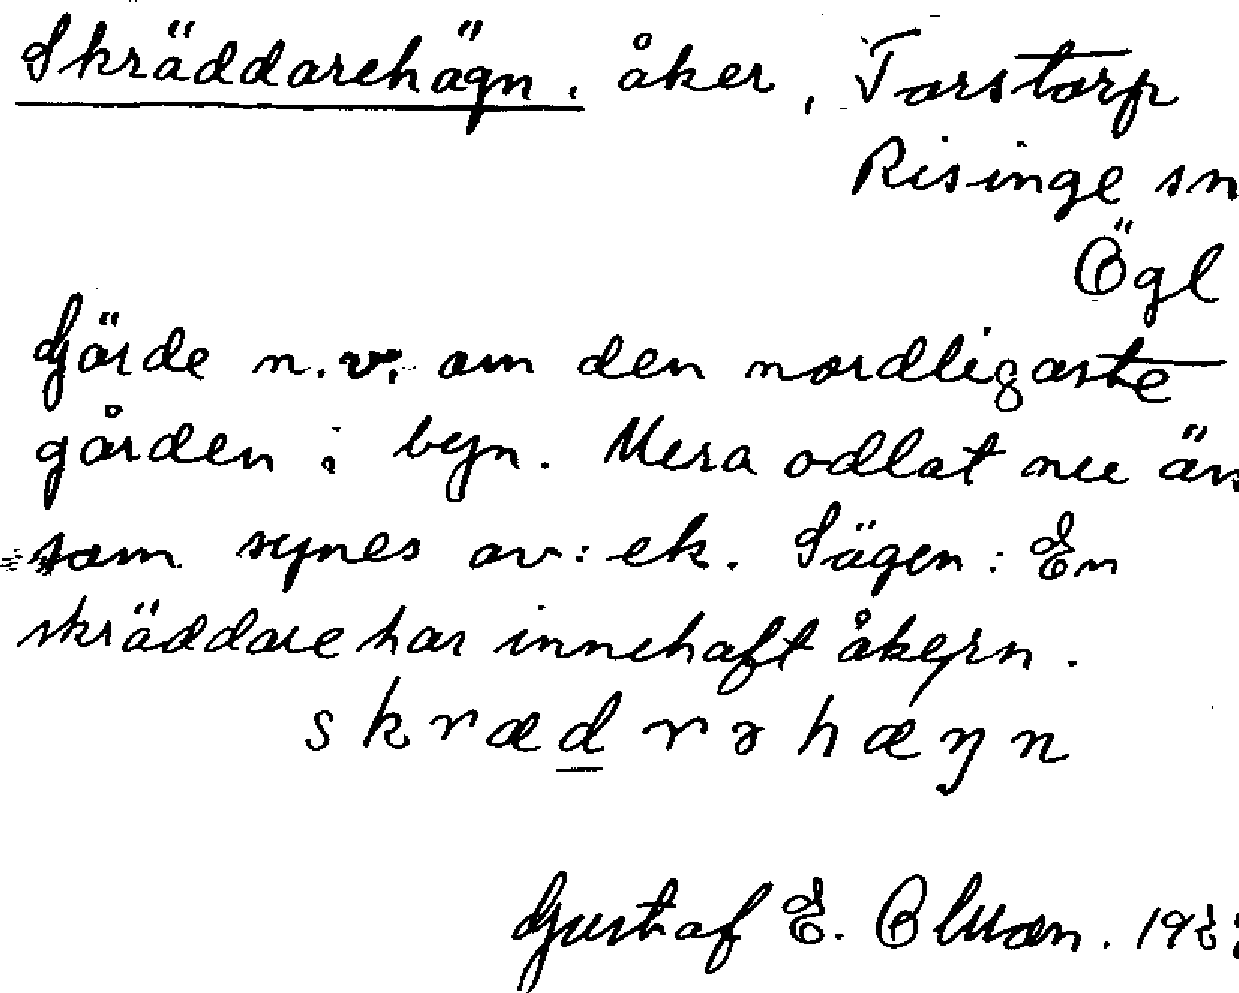 Skräddarehägn, åker, Torstorp
Risinge sn
Ögl
Gärde n.v. om den nordligaste
gården i byn. Mera odlat nu än
som synes av: ek. Sägen: En
skräddare har innehaft åkern.
skrædrəhæŋn
Gustaf E.